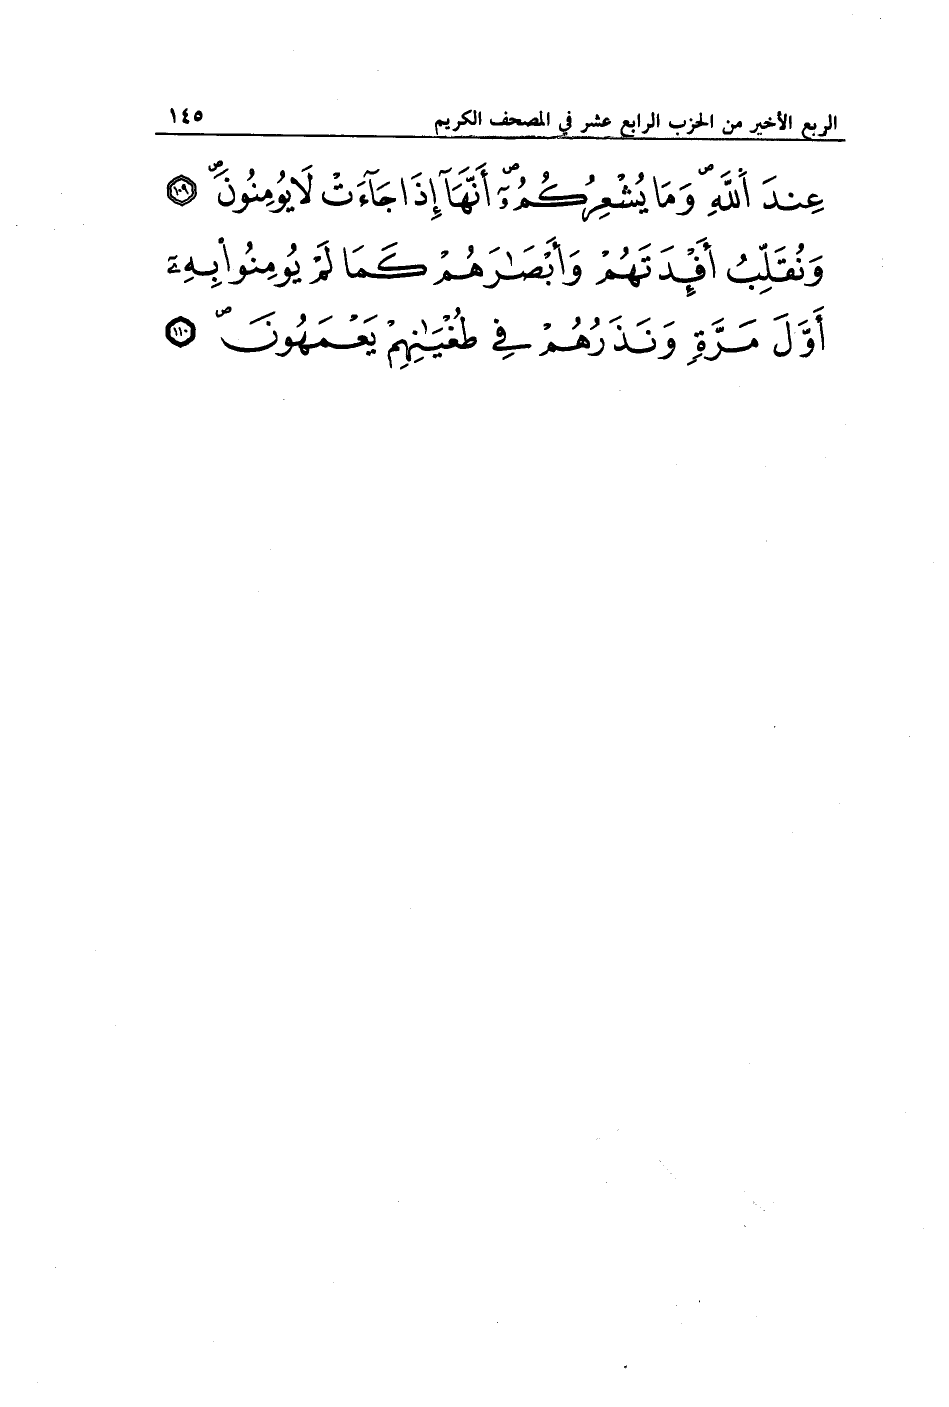 الربع الأخير من الحزب الرابع عشر في المصحف الكريم ١٤٥
عِندَ اَ۬للَّهِۖ وَمَا يُشْعِرُكُمُۥٓۖ أَنَّهَآ إِذَا جَآءَتْ لَا يُومِنُونَۖ ١٠٩
وَنُقَلِّبُ أَفْـِٕدَتَهُمْ وَأَبْصَٰرَهُمْ كَمَا لَمْ يُومِنُواْ بِهِۦٓ
أَوَّلَ مَرَّةٍ وَنَذَرُهُمْ فِي طُغْيَٰنِهِمْ يَعْمَهُونَۖ ١١٠